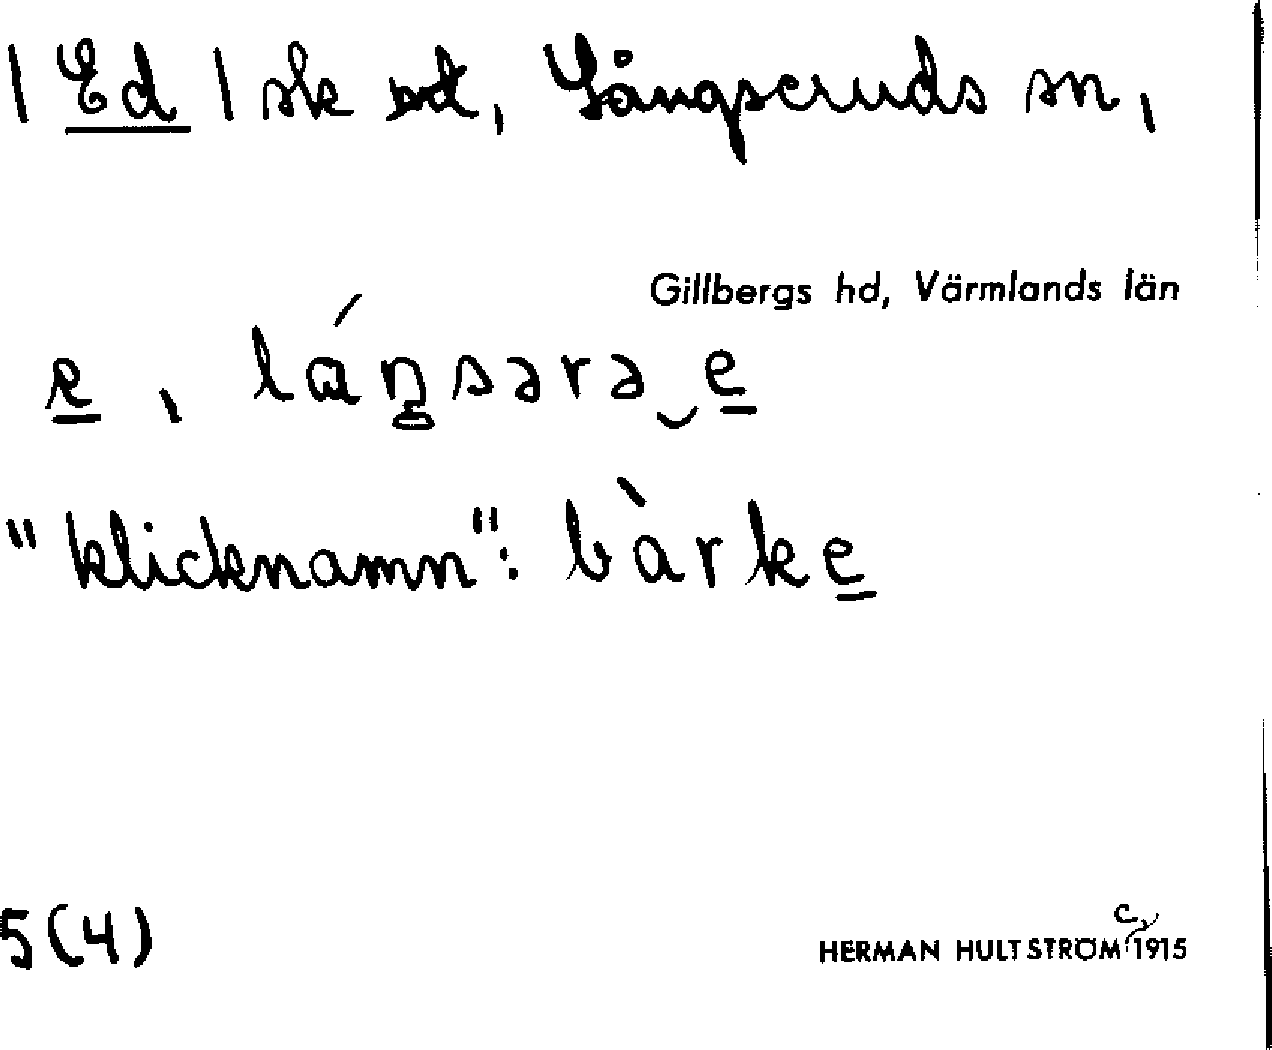 | Ed | sk st, Långseruds sn,
Gillbergs hd, Värmlands län
e̲, láŋsərə‿e̲
"klicknamn": bàrke̲
5(4)
HERMAN HULTSTRÖM c 1915